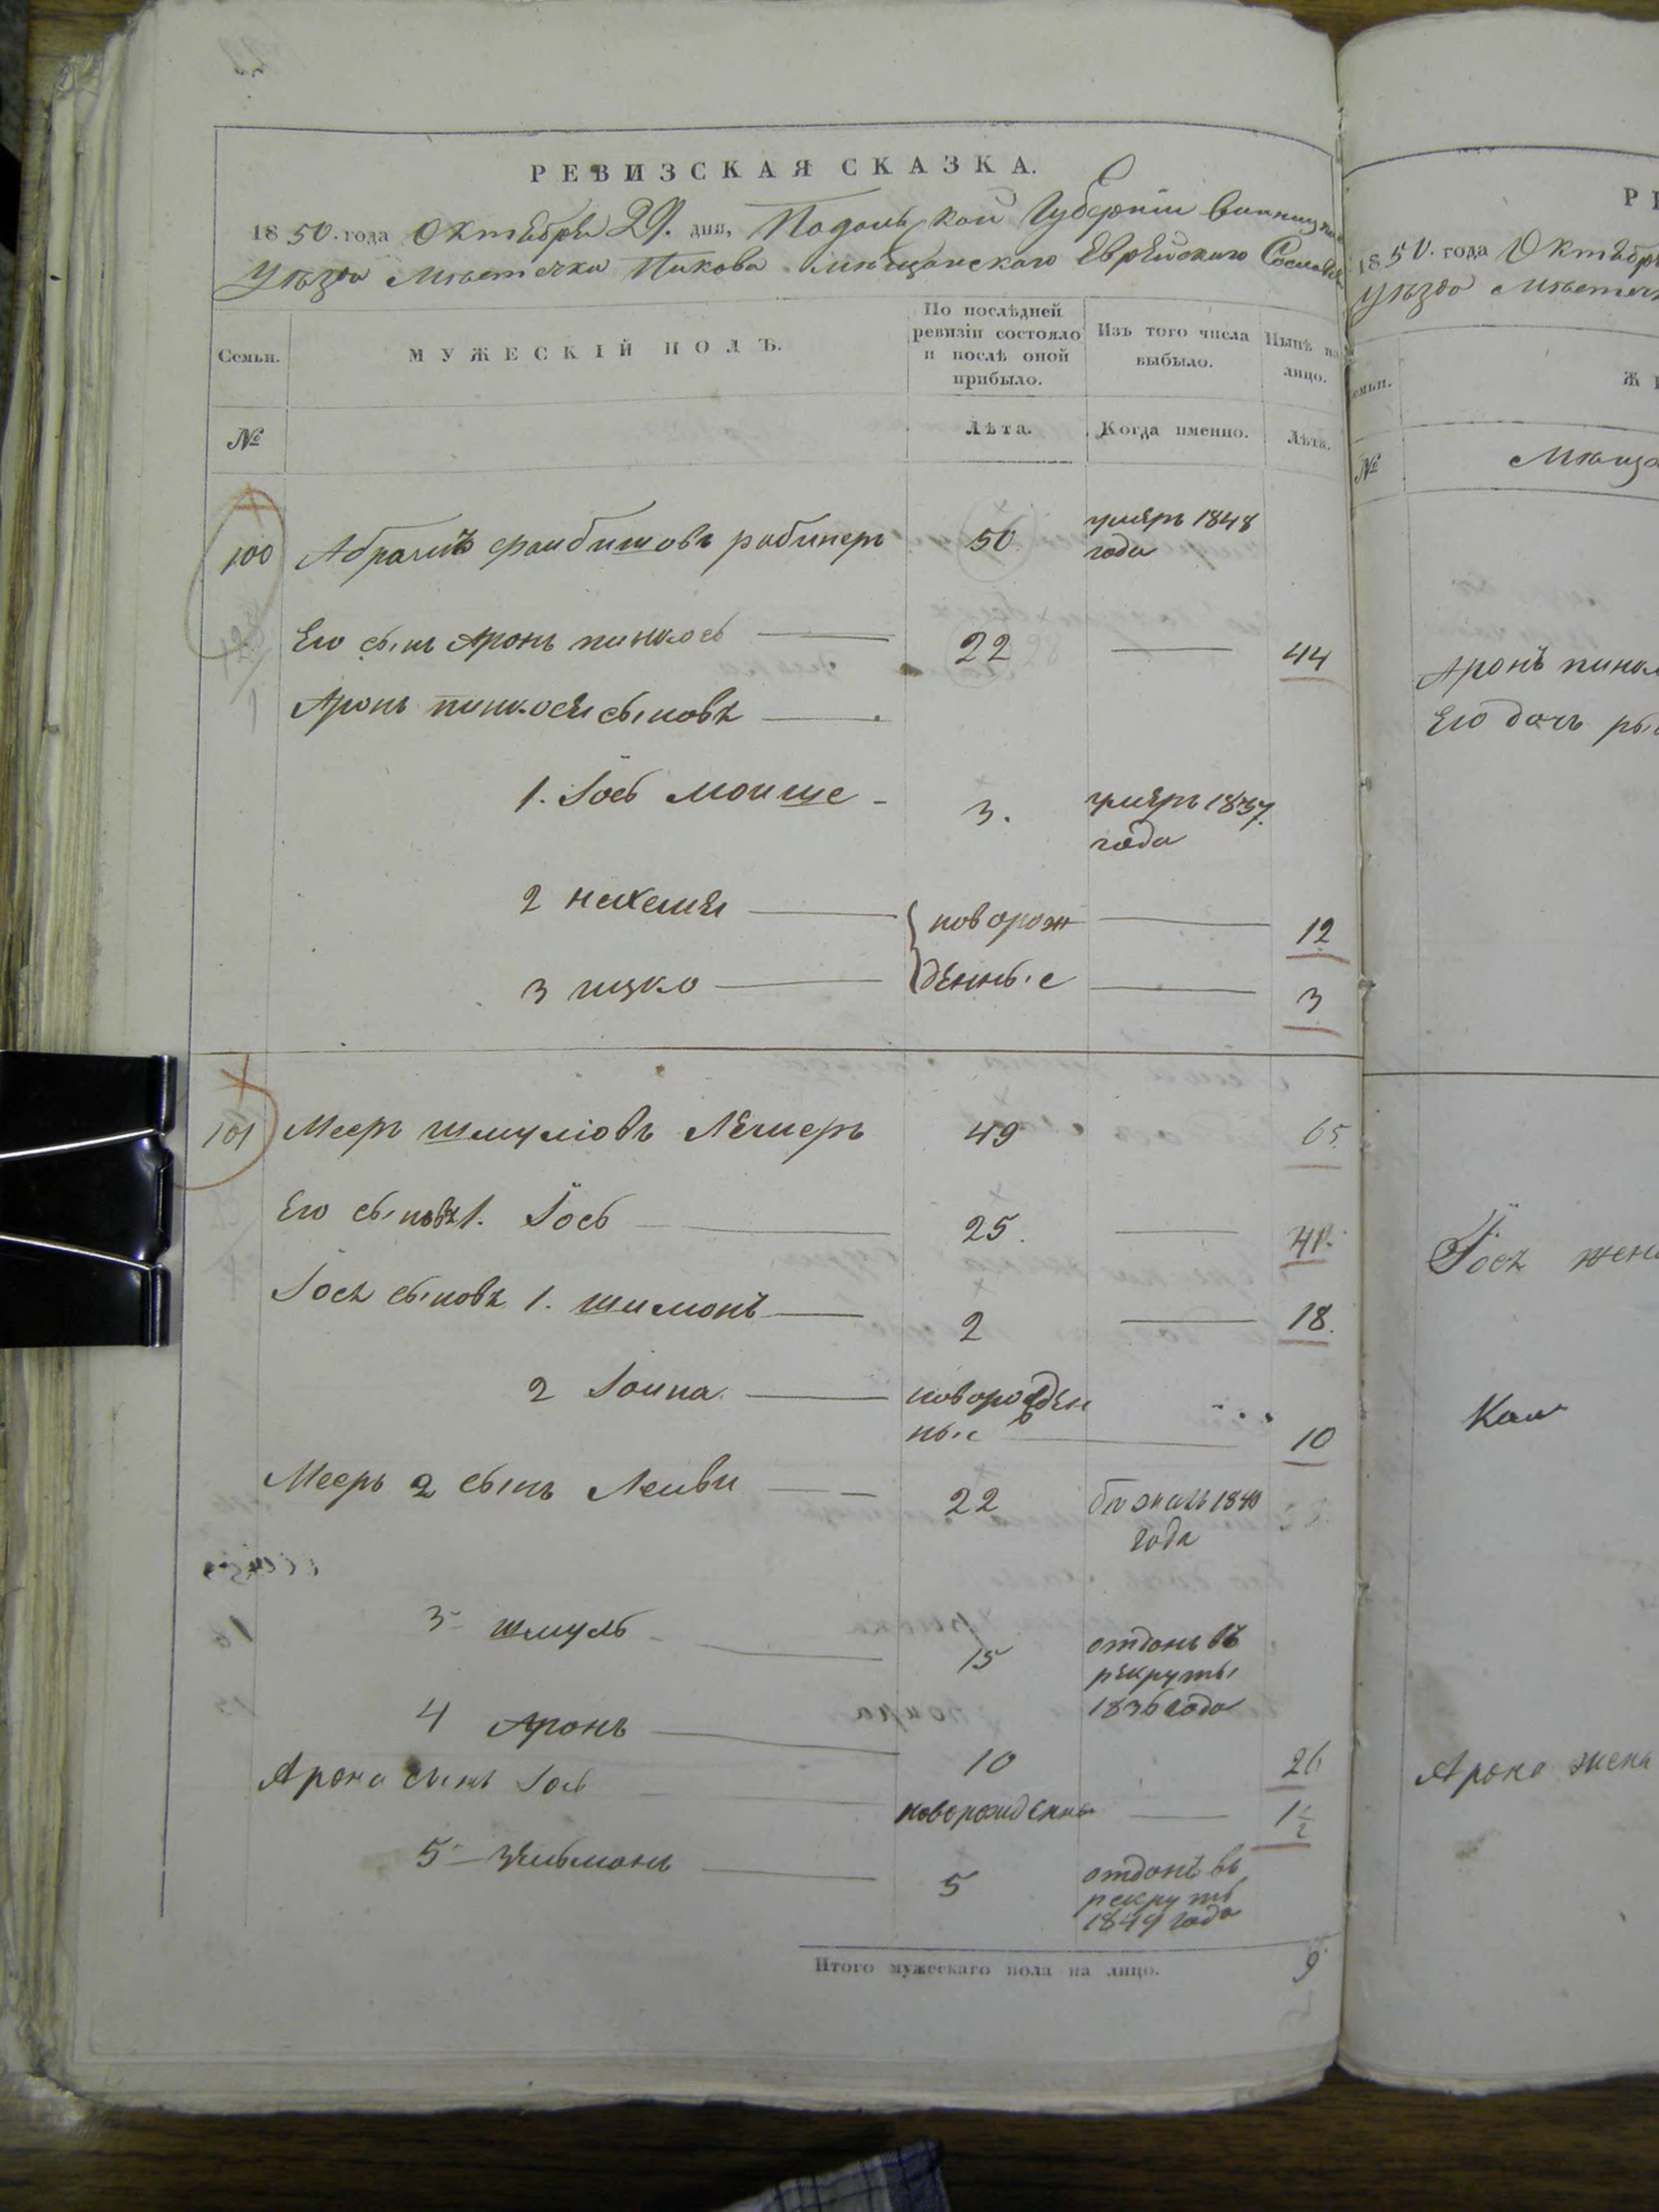 РЕВИЗСКАЯ СКАЗКА.
1850. года Октября 29. дня, Подольской Губерніи Винницкаго
Уѣзда Мѣстечка Пикова мѣщанскаго Еврейскаго Сословія
Семьи.
МУЖЕСКІЙ ПОЛЪ.
По послѣдней ревизіи состояло и послѣ оной прибыло.
Изъ того числа выбыло.
Нынѣ на лицо.
№
Лѣта.
Когда именно.
Лѣта.
100 Абрамъ рабинеръ 50 умеръ 1848
года
Его сынъ Аронъ пинкось 22 44
Аронъ пинкося сыновя
1. Іось моише 3. умеръ 1837.
года
2 нехемия новорож 12
3 ицко денные 3
101 Мееръ шмуліовъ 49 65
Его сыновя 1. Іось 25. 41.
Іося сыновя 1. шимонъ 2 18.
2 Іоина новорожден
ные 10
Мееръ 2 сынъ Леиви 22 бежалъ 1840
года
3 шмуль 15 отдонъ въ
рекруты
1836 года
4 Аронъ 10 26
Арона сынъ Іось новорожденный 1 1/2
5 зельмонъ 5 отдонъ въ
рекруты
1849 года
Итого мужескаго пола на лицо. 9
1850. года Октября
Уѣзда
№
Аронъ
Его дочь
Іося жена
Арона жена